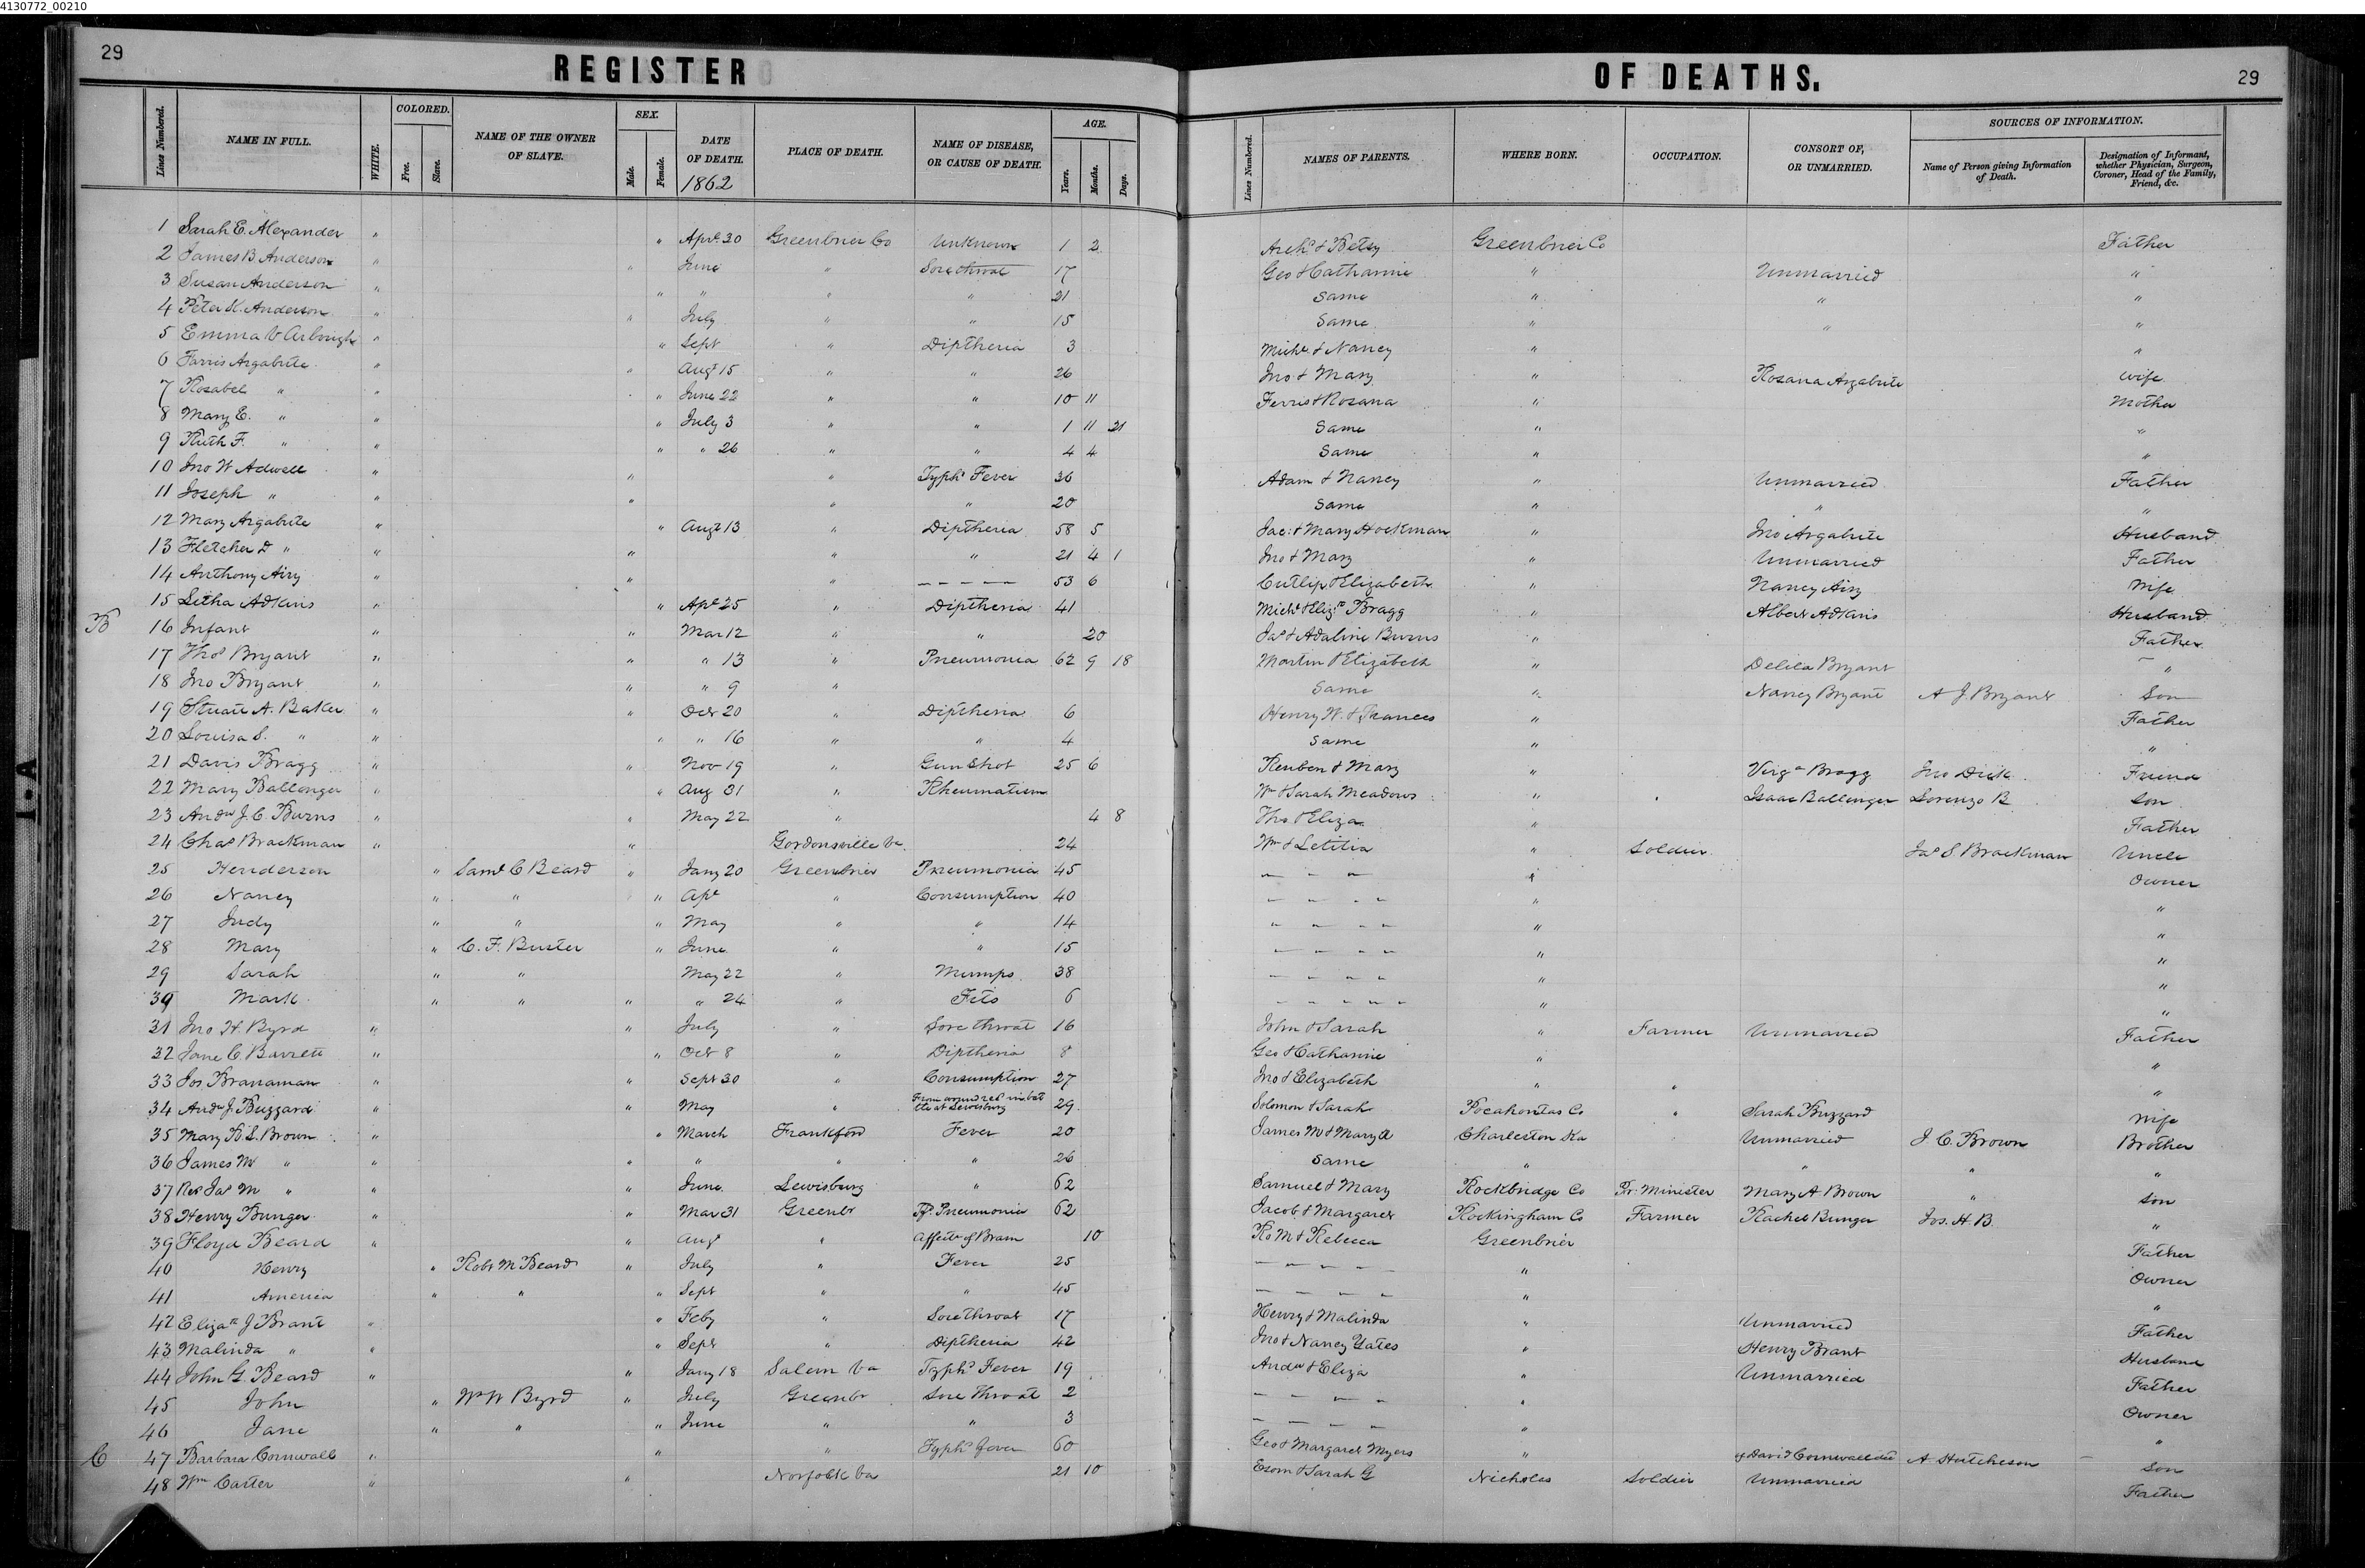 4130772_00210
29
REGISTER OF DEATHS.
29
Lines Numbered. NAME IN FULL. WHITE. COLORED. Free. Slave. NAME OF THE OWNER OF SLAVE. SEX. Male. Female. DATE OF DEATH. 1862 PLACE OF DEATH. NAME OF DISEASE, OR CAUSE OF DEATH. AGE. Years. Months. Days. Lines Numbered. NAMES OF PARENTS. WHERE BORN. OCCUPATION. CONSORT OF, OR UNMARRIED. SOURCES OF INFORMATION. Name of Person giving Information of Death. Designation of Informant, whether Physician, Surgeon, Coroner, Head of the Family, Friend, &c.
1 Sarah E. Alexander " " Apr. 30 Greenbrier Co Unknown 1 2 Archd & Betsy Greenbrier Co Father
2 James B Anderson " " June " Sore throat 17 Geo & Catharine " Unmarried "
3 Susan Anderson " " " " " 21 Same " " "
4 Peter H. Anderson " " July " " 15 Same " " "
5 Emma V Arbough " " Sept " Diptheria 3 Michl & Nancy " "
6 Farris Argabrite " " Augt 15 " " 26 Jno & Mary " Rosana Argabrite Wife
7 Rosabel " " " June 22 " " 10 11 Ferris & Rosana " Mother
8 Mary E. " " " July 3 " " 1 11 21 Same " "
9 Ruth F. " " " " 26 " " 4 4 Same " "
10 Jno W Adwell " " " Typhd Fever 36 Adam & Nancy " Unmarried Father
11 Joseph " " " " " 20 Same " " "
12 Mary Argabrite " " Augt 13 " Diptheria 58 5 Jac: & Mary Hockman " Jno Argabrite Husband
13 Fletcher D " " " " " 21 4 1 Jno & Mary " Unmarried Father
14 Anthony Airy " " " – – – – – 53 6 Cutlip & Elizabeth " Nancy Airy Wife
15 Letha Adkins " " Apl 25 " Diptheria 41 Michl & Elizth Bragg " Albert Adkins Husband
B 16 Infant " " Mar 12 " " 20 Jas & Adaline Burns " Father
17 Thos Bryant " " " 13 " Pneumonia 62 9 18 Martin & Elizabeth " Delila Bryant "
18 Jno Bryant " " " 9 " Same " Nancy Bryant A J Bryant Son
19 Stuart A. Baker " " Oct 20 " Diptheria 6 Henry W. & Frances " Father
20 Louisa S. " " " " 16 " " 4 Same " "
21 Davis Bragg " " Nov 19 " Gun Shot 25 6 Reuben & Mary " Virga Bragg Jno Dick Friend
22 Mary Ballenger " " Aug 31 " Rheumatism Wm & Sarah Meadows " Isaac Ballenger Lorenzo B Son
23 Andw J. C. Burns " " May 22 " 4 8 Tho & Eliza " Father
24 Chas Brackman " " Gordonsville Va. 24 Wm & Letitia " Soldier Jas S. Brackman Uncle
25 Henderson " Saml C Beard " Jany 20 Greenbrier Pneumonia 45 – – – " Owner
26 Nancy " " " Apl " Consumption 40 – – – – " "
27 Judy " " " May " " 14 – – – – " "
28 Mary " C. F. Buster " June " " 15 – – – – " "
29 Sarah " " May 22 " Mumps 38 – – – – " "
30 Mark " " " " 24 " Fits 6 – – – – – " "
31 Jno H. Byrd " " July " Sore throat 16 John & Sarah " Farmer Unmarried Father
32 Jane C. Barrett " " Oct 8 " Diptheria 8 Geo & Catharine " "
33 Jos Branaman " " Sept 30 " Consumption 27 Jno & Elizabeth " " "
34 Andw J. Buzzard " " May " From wound recd in battle at Lewisburg 29 Solomon & Sarah Pocahontas Co " Sarah Buzzard Wife
35 Mary R. S. Brown " " March Frankford Fever 20 James M & Mary A Charleston Ka Unmarried J. C. Brown Brother
36 James M " " " " " " 26 Same " " " "
37 Rev Jas M " " " June. Lewisburg " 62 Samuel & Mary Rockbridge Co Pr. Minister Mary A Brown " Son
38 Henry Bunger " " Mar 31 Greenbr Ty. Pneumonia 62 Jacob & Margaret Rockingham Co Farmer Rachel Bunger Jos. H. B. "
39 Floyd Beard " " Augt " Affectn of Brain 10 Ro M & Rebecca Greenbrier Father
40 Henry " Robt M Beard " July " Fever 25 – – – – – " Owner
41 America " " " Sept " " 45 – – – – " "
42 Elizath J Brant " " Feby " Sore throat 17 Henry & Malinda " Unmarried Father
43 Malinda " " " Sept " Diptheria 42 Jno & Nancy Yates " Henry Brant Husband
44 John G Beard " " Jany 18 Salem Va Typhd Fever 19 Andw & Eliza " Unmarried Father
45 John " Wm W Byrd " July Greenbr Sore Throat 2 – – – – " Owner
46 Jane " " " June " " 3 – – – – " "
C 47 Barbara Cornwall " " " Typhd fever 60 Geo & Margaret Myers " of David Cornwall dec A Hutcheson Son
48 Wm Carter " " Norfolk Va 21 10 Esom & Sarah G Nicholas Soldier Unmarried Father